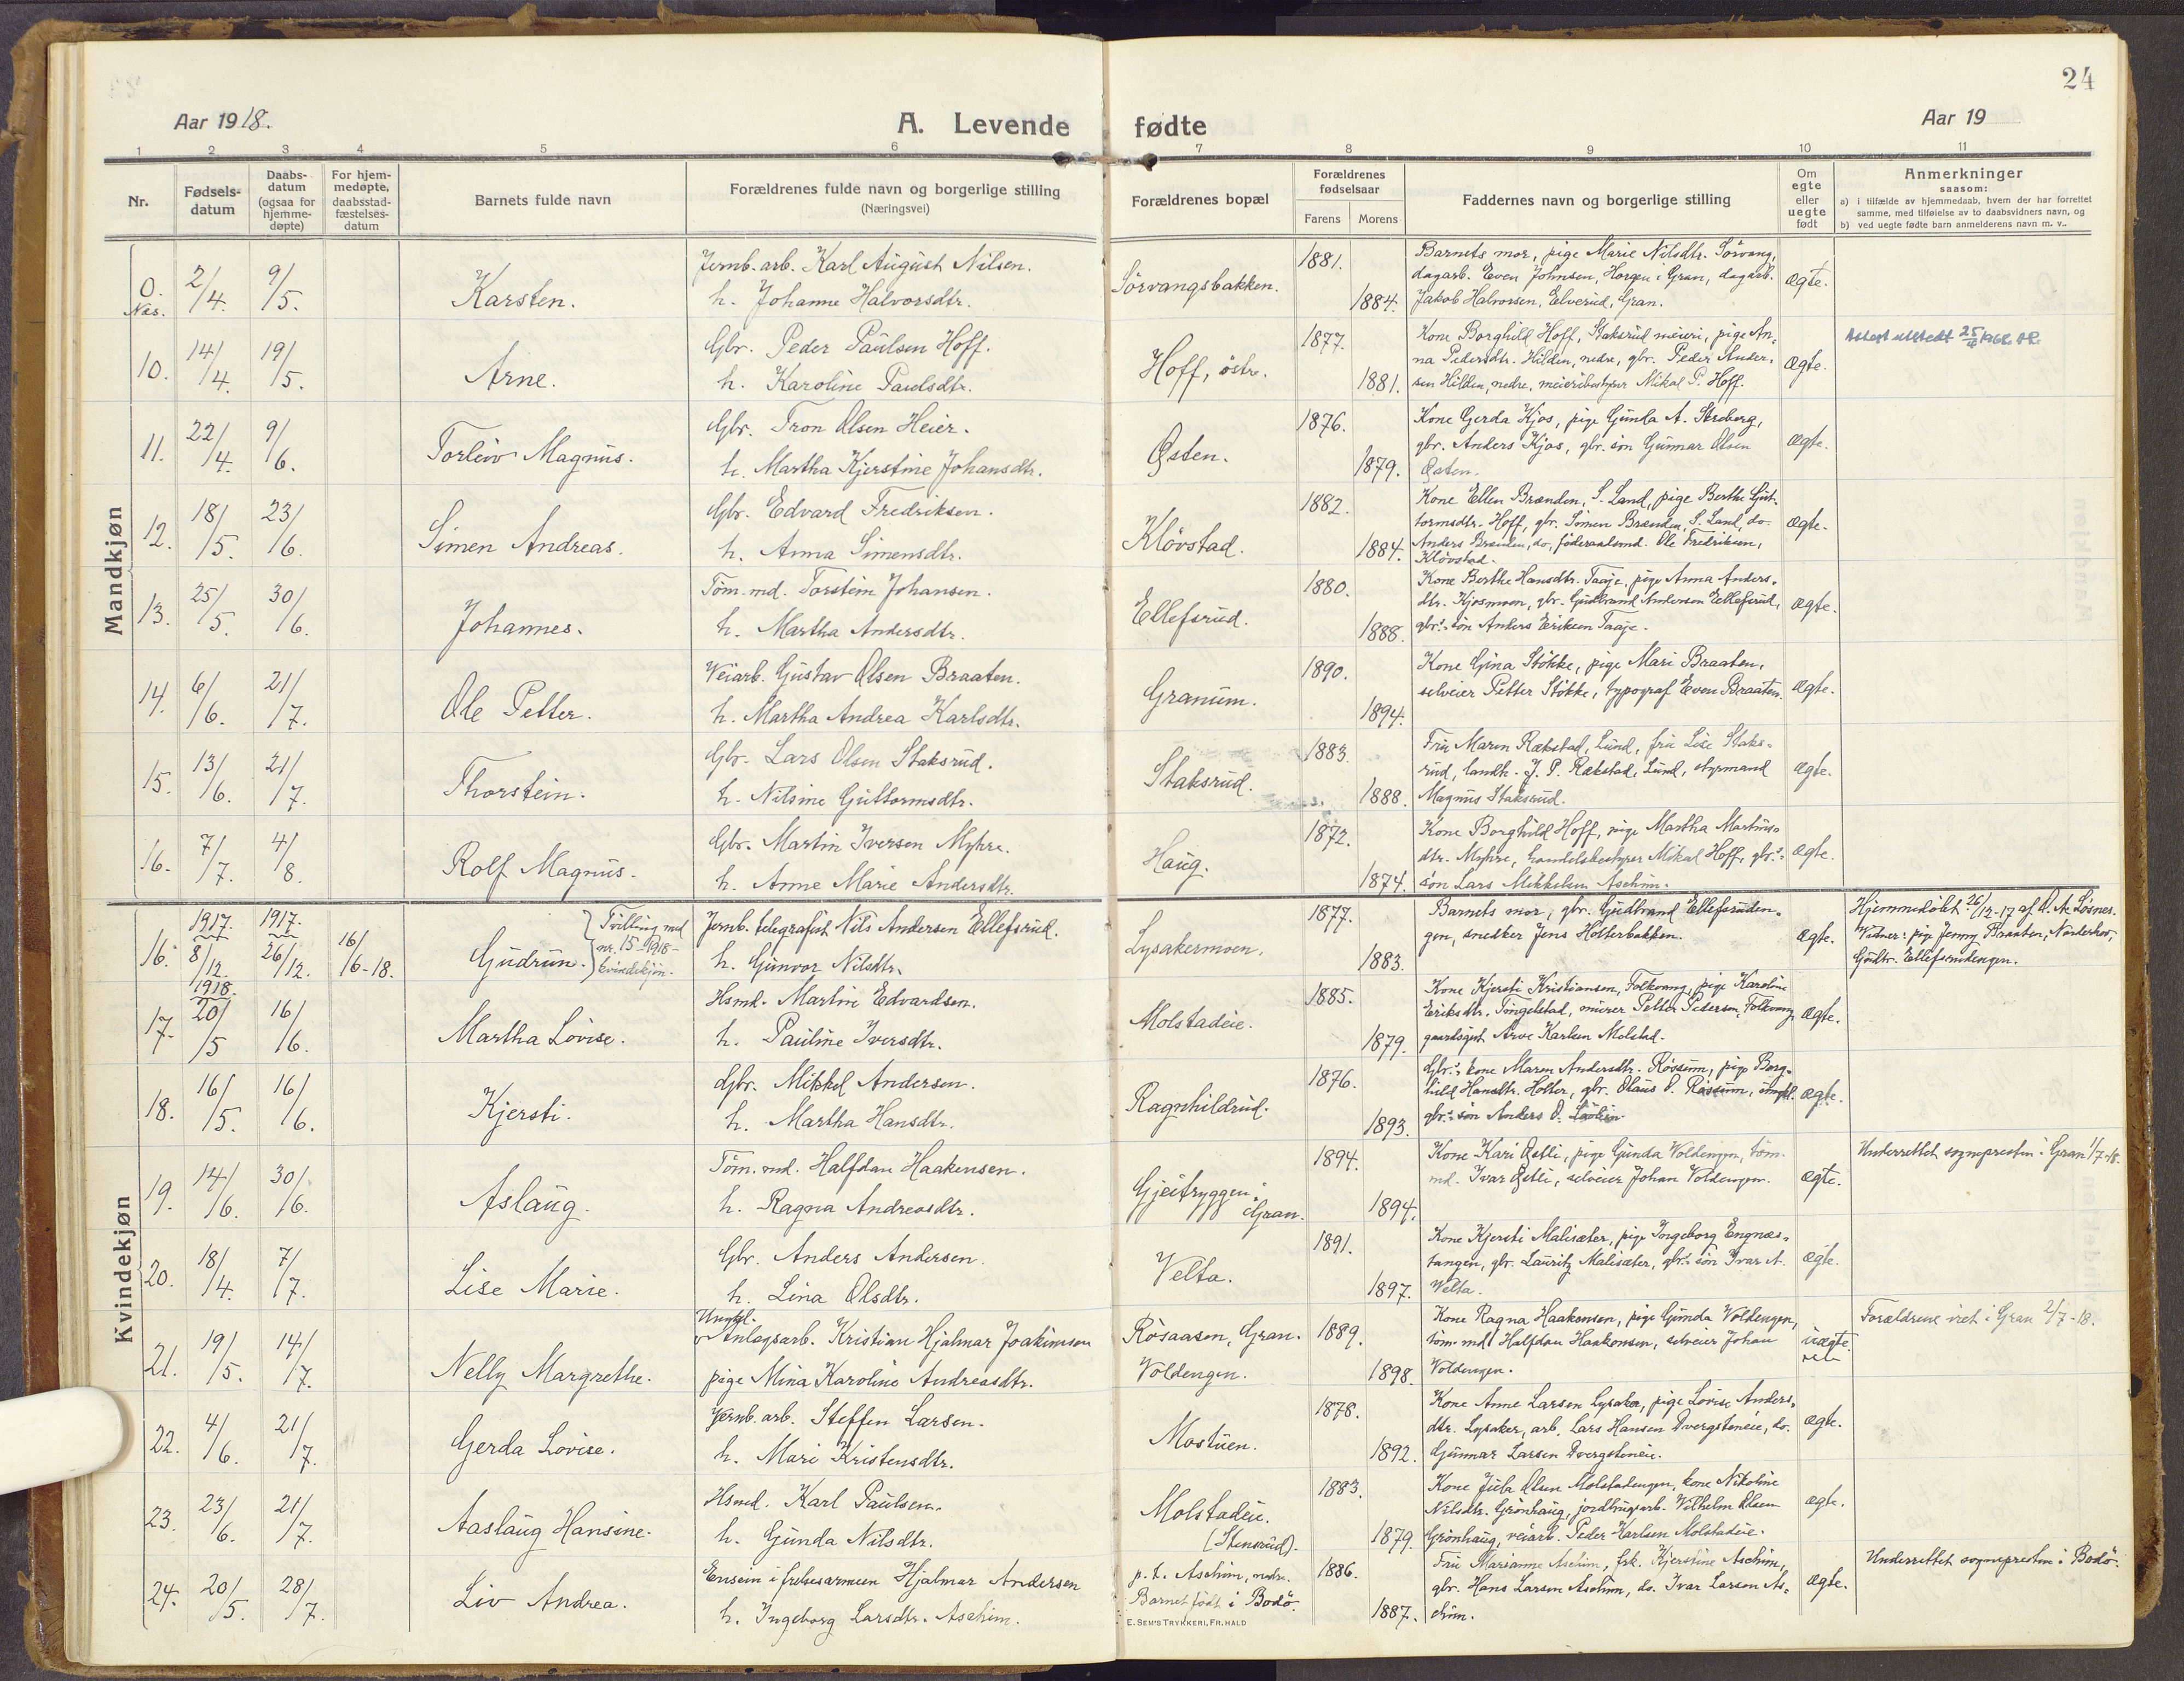 24
Aar 1918.
A. Levende fødte
Aar 19
1 2 3 4 5 6 7 8 9 10 11
Nr.
Fødsels-
datum
Daabs-
datum
(ogsaa for
hjemme-
døpte)
For hjem-
medøpte,
daabsstad-
fæstelses-
datum
Barnets fulde navn
Forældrenes fulde navn og borgerlige stilling
(Næringsvei)
Forældrenes bopæl
Forældrenes
fødselsaar
Farens Morens
Faddernes navn og borgerlige stilling
Om
egte
eller
uegte
født
Anmerkninger
saasom:
a) i tilfælde av hjemmedaab, hvem der har forrettet
samme, med tilføielse av to daabsvidners navn, og
b) ved uegte fødte barn anmelderens navn m. v..
Mandkjøn
0. Nas. 2/4. 9/5. Karsten.
Jernb. arb. Karl August Nilsen.
h. Johanne Halvorsdtr.
Sörvangsbakken. 1881. 1884.
Barnets mor, pige Marie Nilsdtr. Sörvang,
dagarb. Even Johnsen, Horgen i Gran, dagarb.
Jakob Halvorsen, Elverud, Gran.
Ægte.
10. 14/4. 19/5. Arne.
Gbr. Peder Paulsen Hoff.
h. Karoline Paulsdtr.
Hoff, östre. 1877. 1881.
Kone Borghild Hoff, Staksrud meieri, pige An-
na Pedersdtr. Hilden, nedre, gbr. Peder Ander-
sen Hilden, nedre, meieribestyrer Mikal P. Hoff.
Ægte.
Attest utstedt 25/4 1968
11. 22/4. 9/6. Torleiv Magnus.
Gbr. Tron Olsen Heier.
h. Martha Kjerstine Johansdtr.
Østen. 1876. 1879.
Kone Gerda Kjos, pige Gunda A.
gbr. Anders Kjos, gbr. sön Gunnar Olsen
Østen.
Ægte.
12. 18/5. 23/6. Simen Andreas.
Gbr. Edvard Fredriksen.
h. Anna Simensdtr.
Klövstad. 1882. 1884.
Kone Ellen Brænden, S. Land, pige Berthe Gut-
tormsdtr. Hoff, gbr. Simen Brænden, S. Land, do.
Anders Brænden, do, föderaadsmd. Ole Fredriksen,
Klövstad.
Ægte.
13. 25/5. 30/6. Johannes.
Töm. md. Torstein Johansen.
h. Martha Andersdtr.
Ellefsrud. 1880. 1888.
Kone Berthe Hansdtr. Taaje, pige Anna Anders-
dtr. Kjosmoen, gbr. Gudbrand Andersen Ellefsrud,
gbr.s sön Anders Eriksen Taaje.
Ægte.
14. 6/6. 21/7. Ole Petter.
Veiarb. Gustav Olsen Braaten.
h. Martha Andrea Karlsdtr.
Granum. 1890. 1894.
Kone Gina Stökke, pige Mari Braaten,
selveier Petter Stökke, typograf Even Braaten.
Ægte.
15. 13/6. 21/7. Thorstein.
Gbr. Lars Olsen Staksrud.
h. Nilsine Guttormsdtr.
Staksrud. 1883. 1888.
Fru Maren Rækstad, Lund, fru Lise Staks-
rud, landh. J. P. Rækstad, Lund, styrmand
Magnus Staksrud.
Ægte.
16. 7/7. 4/8. Rolf Magnus.
Gbr. Martin Iversen Myhre.
h. Anne Marie Andersdtr.
Haug. 1872. 1874.
Kone Borghild Hoff, pige Martha Martins-
dtr. Myhre, handelsbestyrer Mikal Hoff, gbr.s-
sön Lars Mikkelsen Aschim.
Ægte.
Kvindekjøn
16. 1917. 8/12. 1917. 26/12. 16/6-18. Gudrun.
Tvilling med
nr. 15-1918-
kvindekjön.
Jernb. telegrafist Nils Andersen Ellefsrud.
h. Gunvor Nilsdtr.
Lysakermoen. 1877. 1883.
Barnets mor, gbr. Gudbrand Ellefsruden-
gen, snedker Jens Holterbakken.
Ægte.
Hjemmedöbt 26/12-17 af A. Løsnes.
Vidner: pige Jenny Braaten, Norderhov,
Gudbr. Ellefsrudengen.
1918.
17. 20/5 16/6. Martha Lovise.
Hsmd. Martin Edvardsen.
h. Pauline Iversdtr.
Molstadeie. 1885. 1879.
Kone Kjersti Kristiansen, Folkvang, pige Karoline
Eriksdtr. Tingelstad, murer Petter Pedersen, Folkvang
gaardsgut Arve Karlsen Molstad.
Ægte.
18. 16/5. 16/6. Kjersti.
Gbr. Mikkel Andersen.
h. Martha Hansdtr.
Ragnhildrud. 1876. 1893.
Gbr.s kone Maren Andersdtr. Røssum, pige Borg-
hild Hansdtr. Holter, gbr. Olaus O. Røssum, ungkl.
gbr.s sön Anders O.
Ægte.
19. 14/6. 30/6. Aslaug.
Töm. md. Halfdan Haakensen.
h. Ragna Andreasdtr.
Gjeitryggen i
Gran. 1894. 1894.
Kone Kari Østli, pige Gunda Voldengen, töm.
md. Ivar Østli, selveier Johan Voldengen.
Ægte.
Underrettet sognepresten i Gran 1/7-18.
20. 18/4. 7/7. Lise Marie.
Gbr. Anders Andersen.
h. Lina Olsdtr.
Velta. 1891. 1897.
Kone Kjersti Malisæter, pige Ingeborg Engnæs-
tangen, gbr. Lauritz Malisæter, gbr.s sön Ivar A.
Velta.
Ægte.
21. 19/5. 14/7. Nelly Margrethe.
Ungkl.
Anlægsarb. Kristian Hjalmar Joakimsen
pige Mina Karoline Andreasdtr.
Røsaasen, Gran.
Voldengen. 1889. 1898.
Kone Ragna Haakensen, pige Gunda Voldengen,
töm. md. Halfdan Haakensen, selveier Johan
Voldengen.
Uægte.
Forældrene viet i Gran 2/7-18.
22. 4/6. 21/7. Gerda Lovise.
Jernb. arb. Steffen Larsen.
h. Mari Kristensdtr.
Mostuen. 1878. 1892.
Kone Anne Larsen Lysaker, pige Lovise Anders-
dtr. Lysaker, arb. Lars Hansen Dvergsteneie, do.
Gunnar Larsen Dvergsteneie.
Ægte.
23. 23/6. 21/7. Aaslaug Hansine.
Hsmd. Karl Paulsen.
h. Gunda Nilsdtr.
Molstadeie.
(Stensrud). 1883. 1879.
Kone Julia Olsen Molstadengen, kone Nikoline
Nilsdtr. Grönhaug, jordbrugsarb. Vilhelm Olsen
Grönhaug, veiarb. Peder Karlsen Molstadeie.
Ægte.
24. 20/5. 28/7. Liv Andrea.
Ensein i frelsesarmeen Hjalmar Andersen
h. Ingeborg Larsdtr. Aschim.
p. t. Aschim, nedre.
Barnet født i Bodö. 1886. 1887.
Fru Marianne Aschim, frk. Kjerstine Aschim,
gbr. Hans Larsen Aschim, do. Ivar Larsen As-
chim.
Ægte.
Underrettet sognepresten i Bodö.
E. SEM'S TRYKKERI, FR. HALD